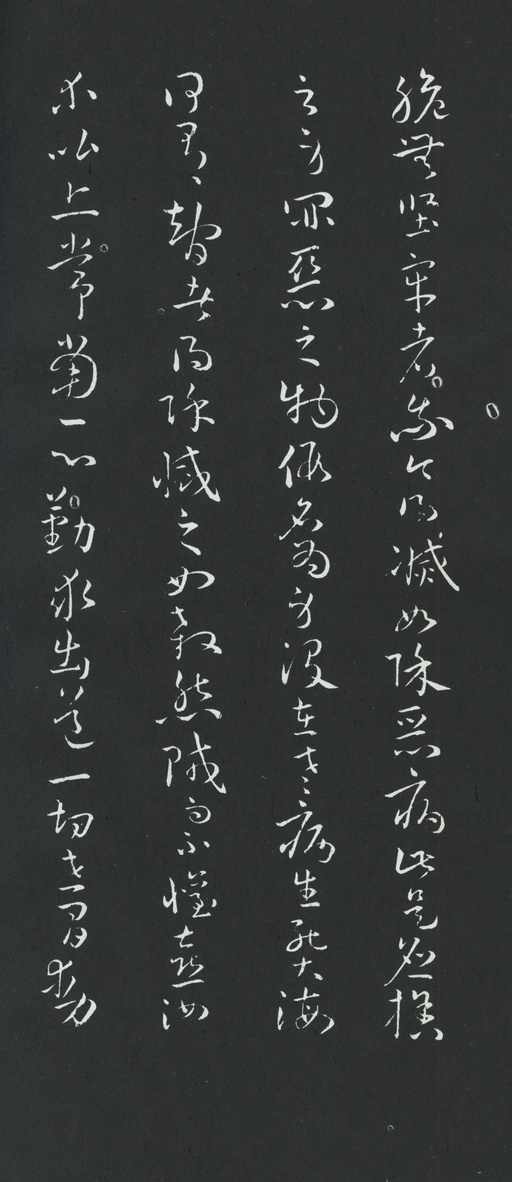 脆無堅牢者我今得滅如除惡病此是應捨
之身罪惡之物假名為身沒在老病生死大海
何有智者得除滅之如殺怨賊而不懽喜汝
等比丘常當一心勤求出道一切世間動